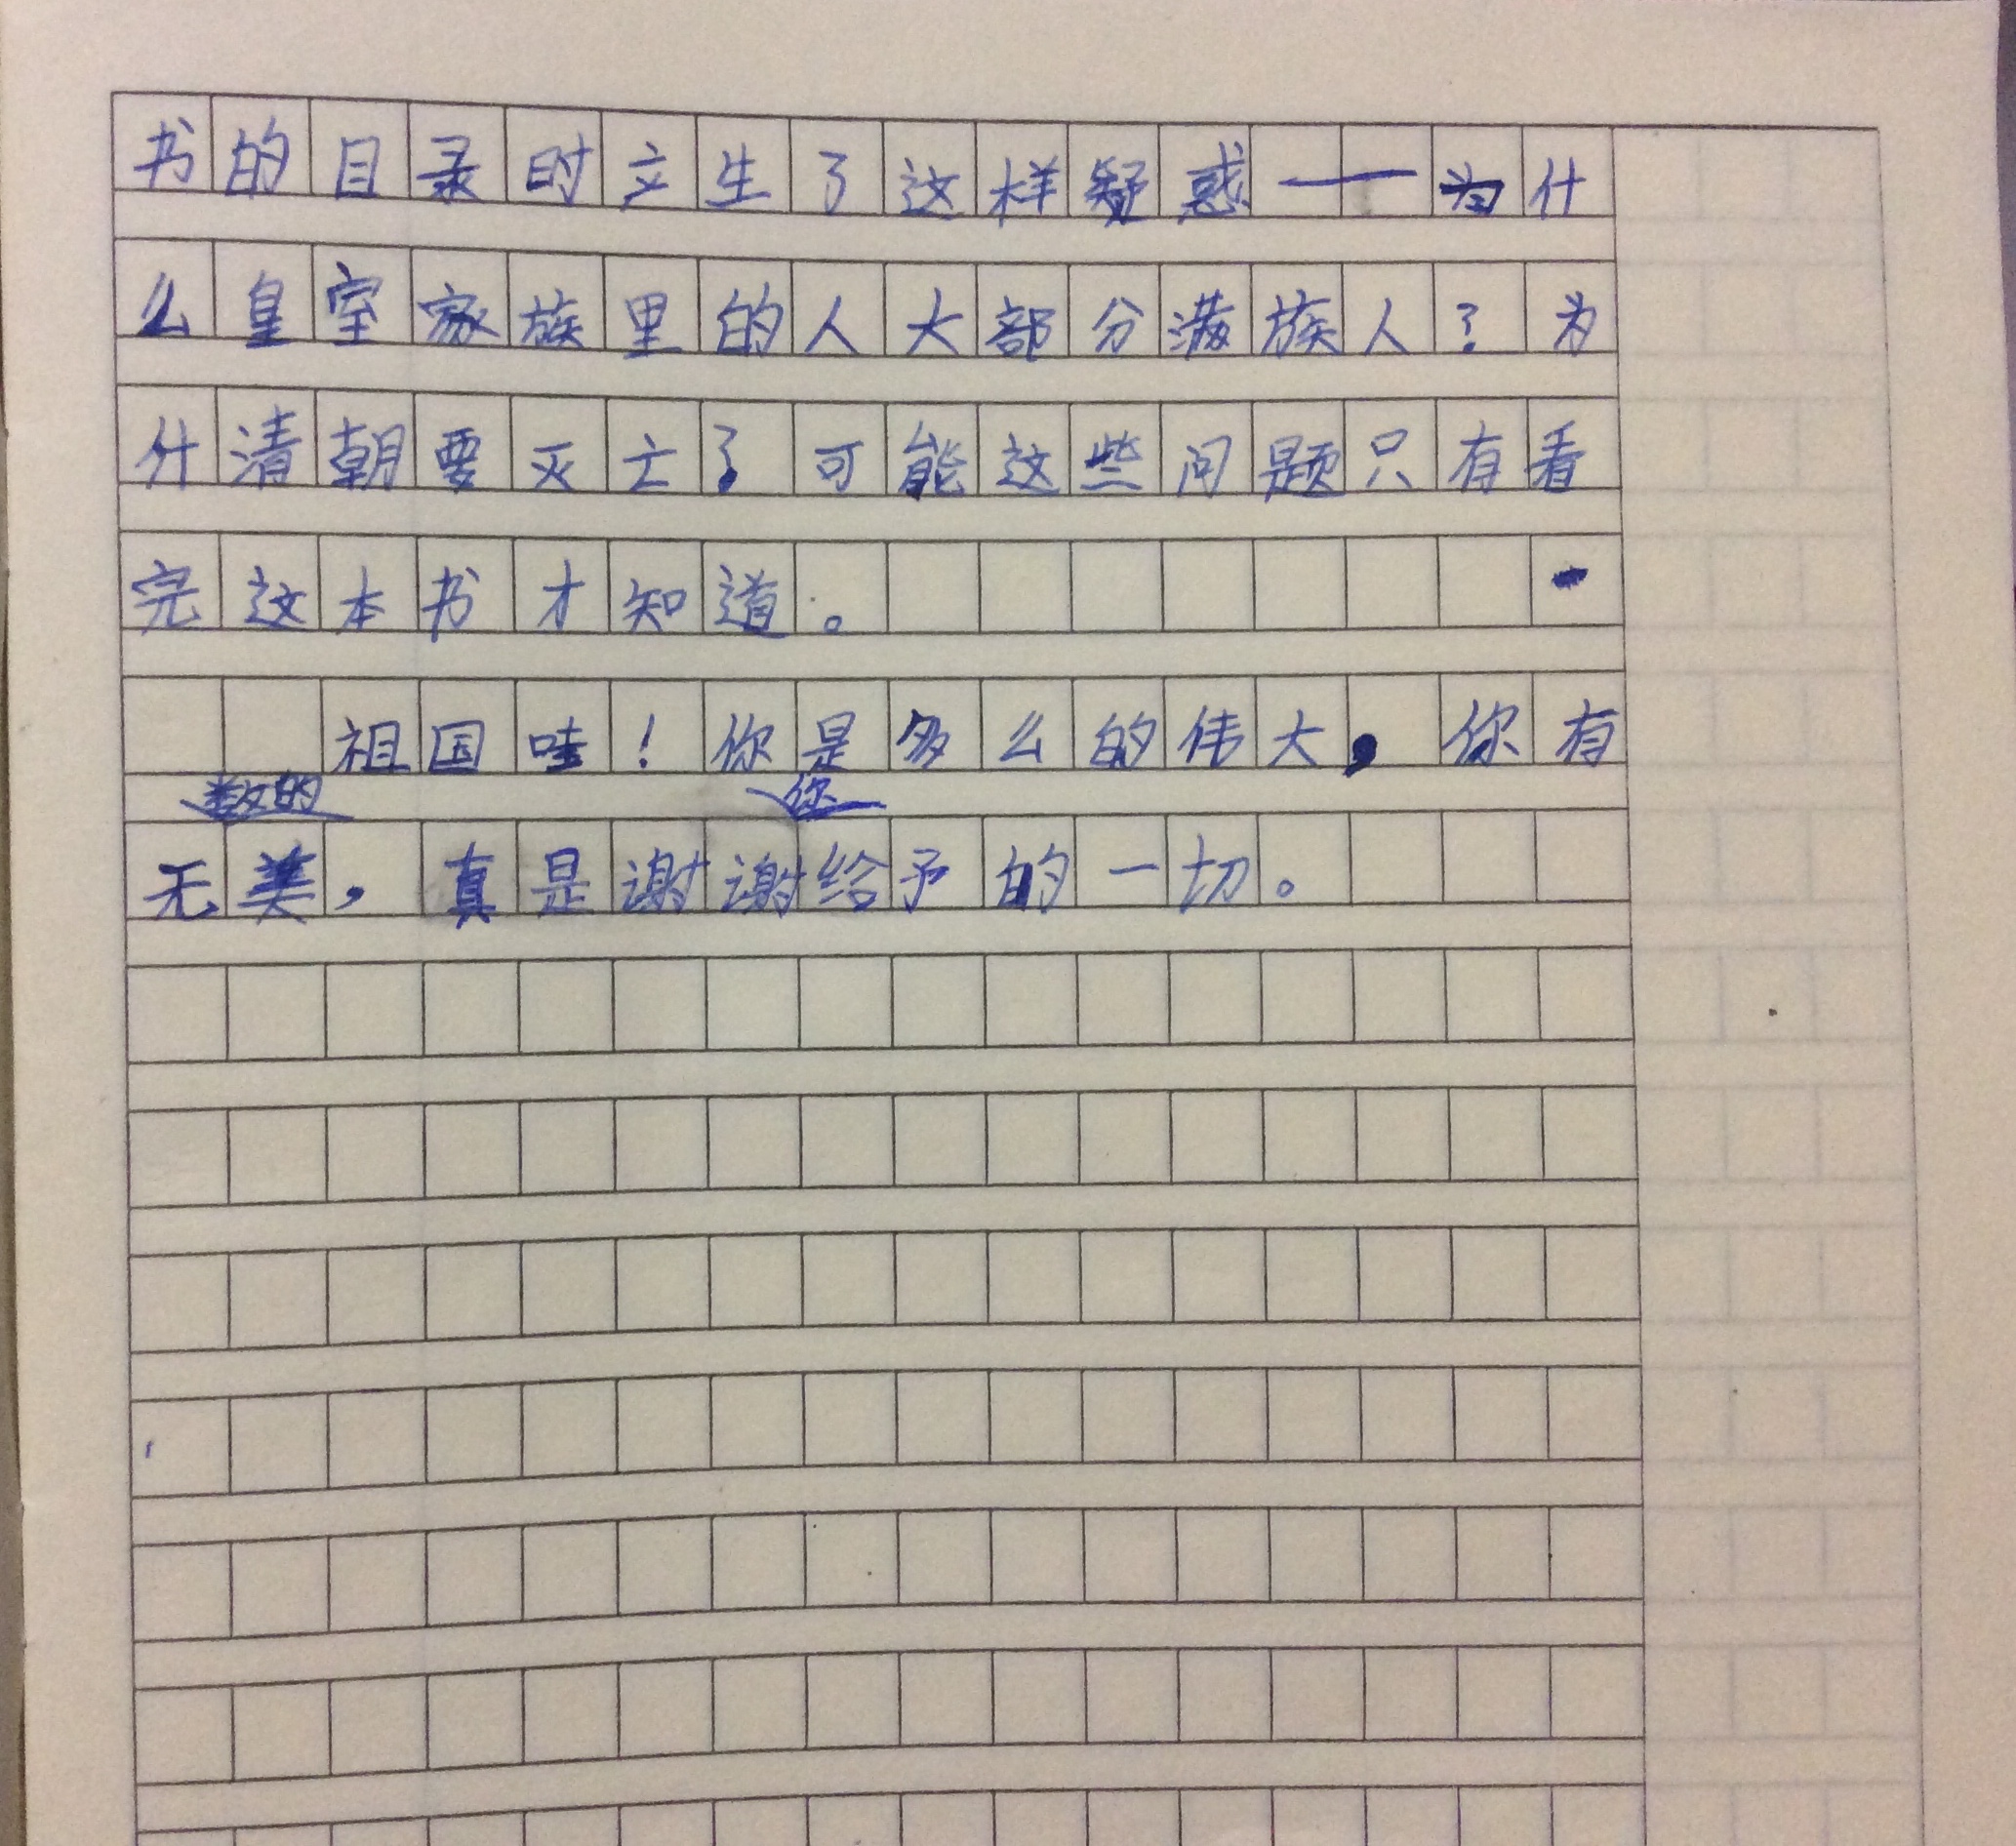 书的目录时产生了这样疑惑——为什
么皇室家族里的人大部分满族人？为
什清朝要灭亡？可能这些问题只有看
完这本书才知道。
祖国哇！你是多么的伟大，你有
数的 你
无美，真是谢谢给予的一切。